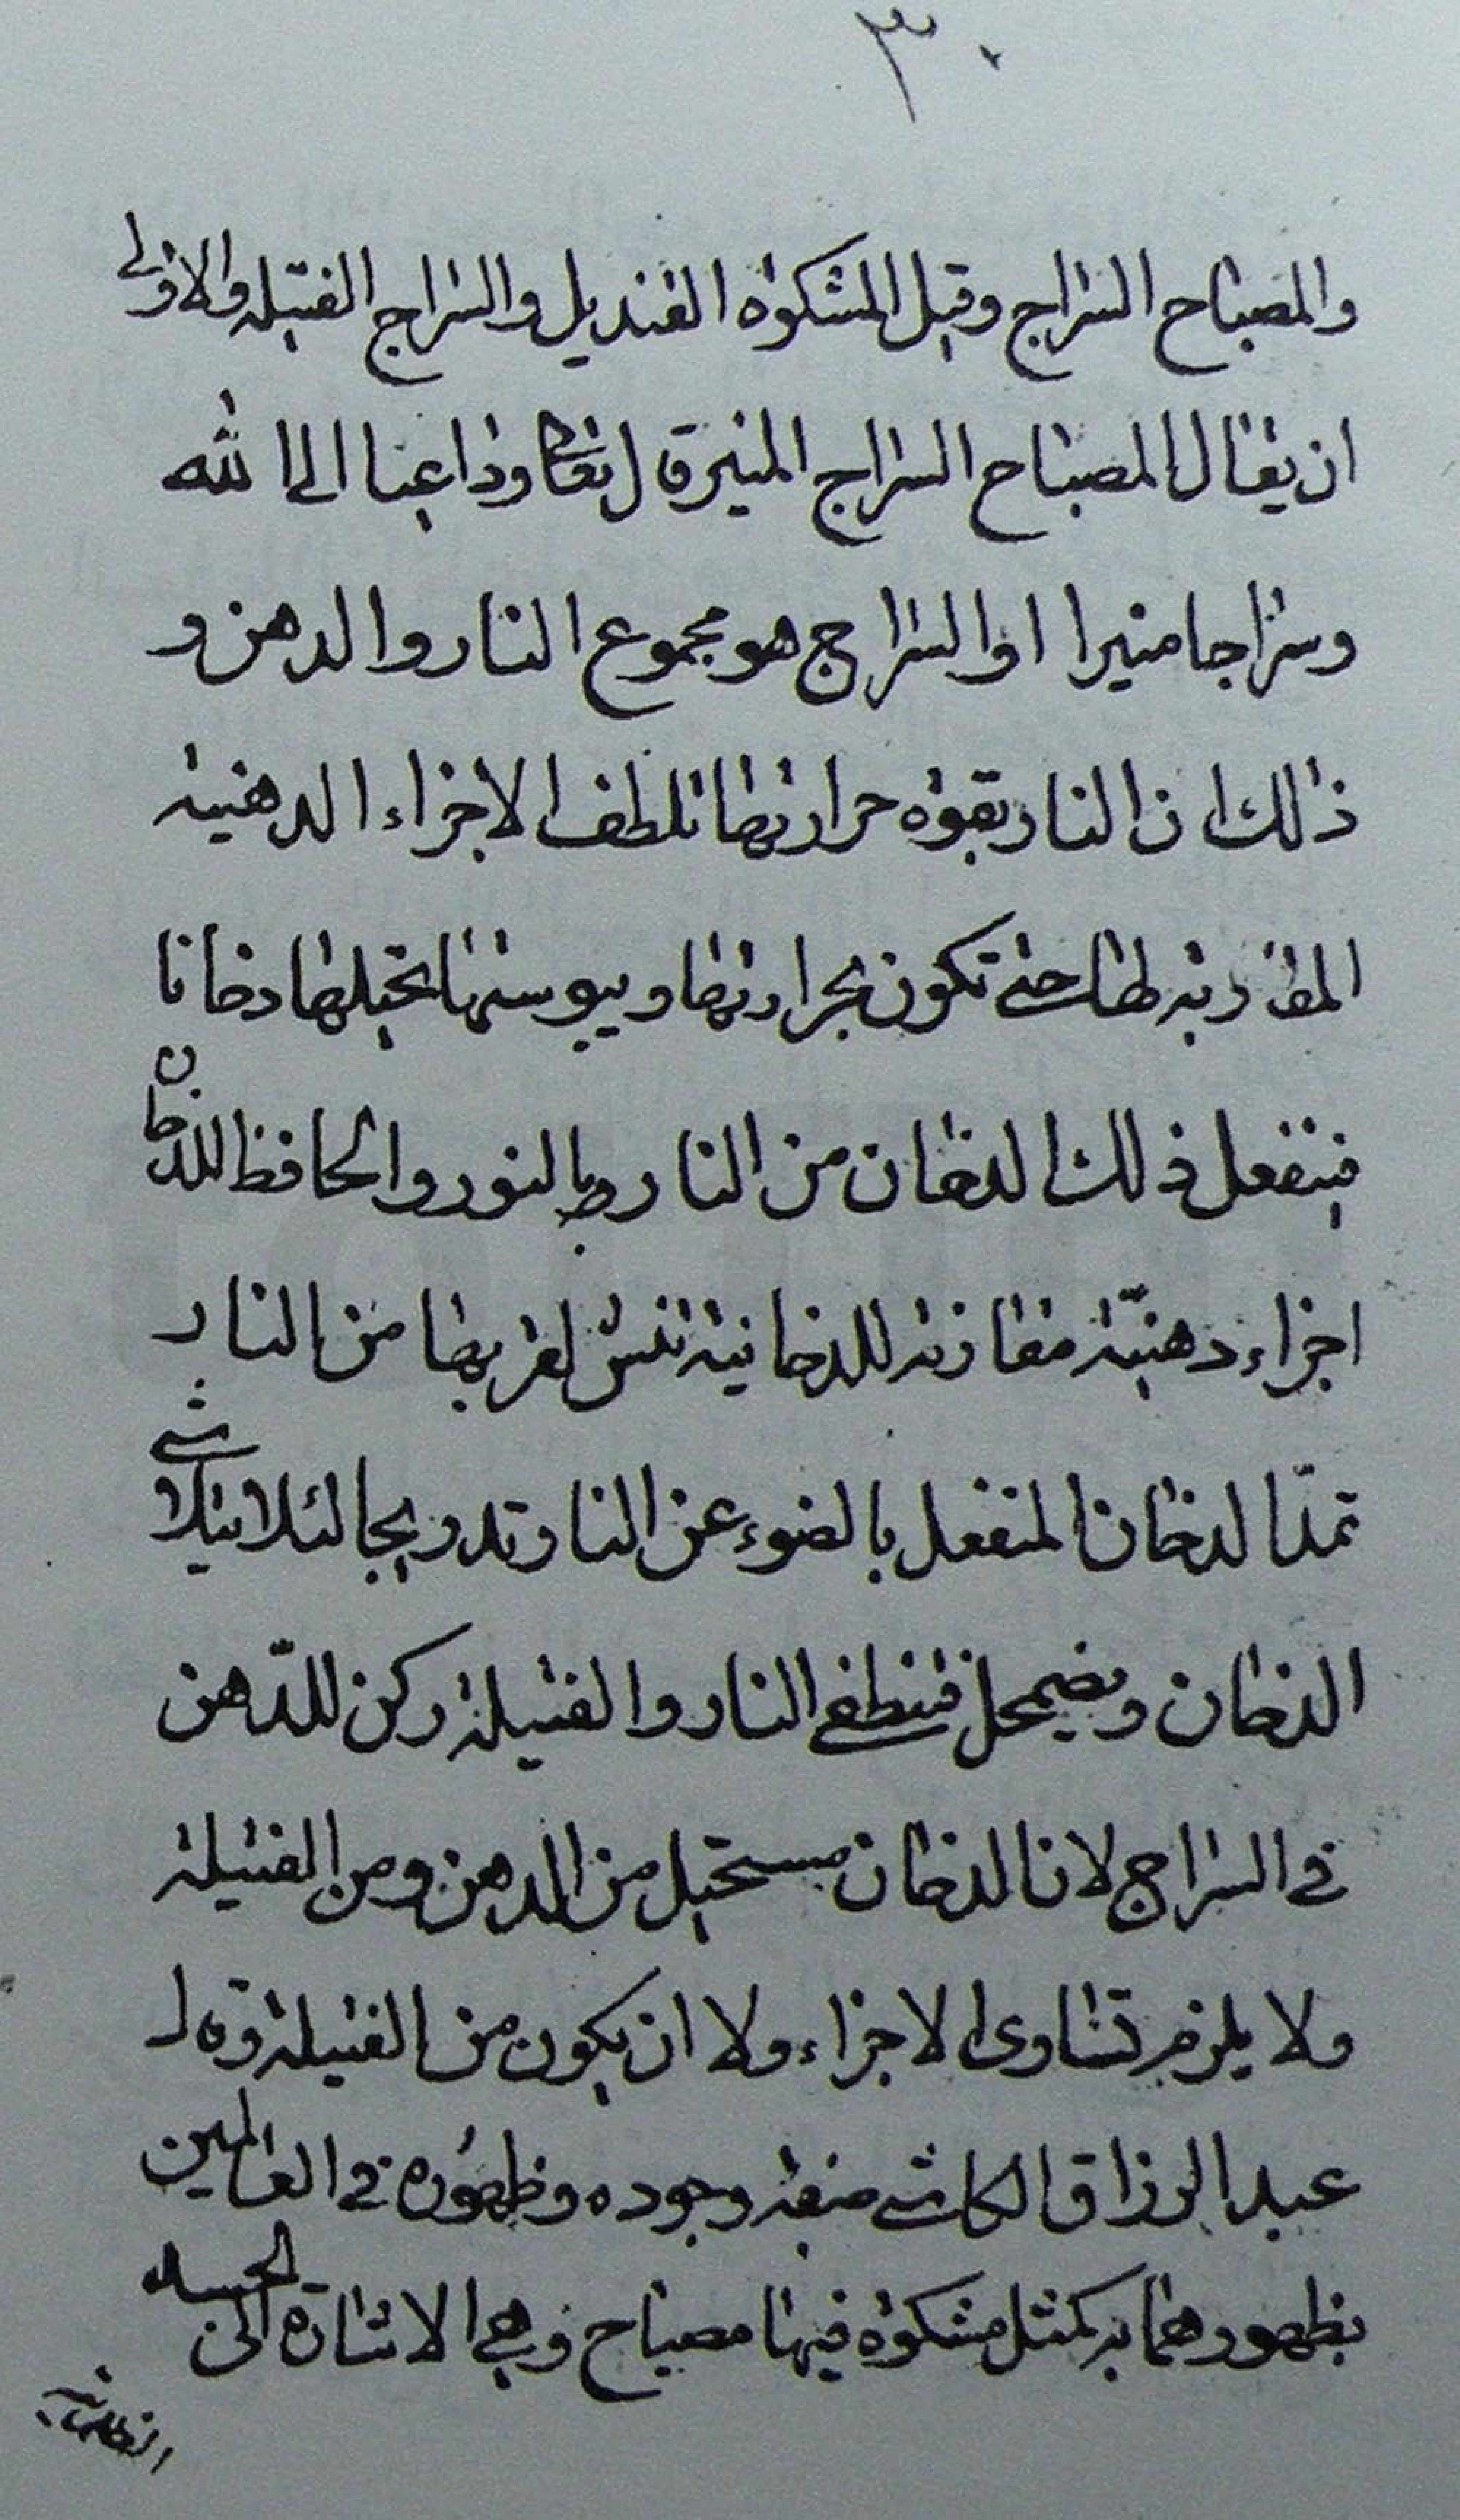 ٣٠
والمصباح السراج وقيل المشكوة القنديل والسراج الفتيلة والاولى
ان يقال المصباح السراج المنير قال تعالى وداعيا الى الله
وسراجا منيرا اذ السراج هو مجموع النار والدهن و
ذلك ان النار بقوة حرارتها تلطف الاجزاء الدهنية
المقاربة لها حتى تكون بحرارتها ويبوستها تحيلها دخانا
فينفعل ذلك الدخان من النار بالنور والحافظ للدخان
اجزاء دهنيّة مقارنة للدخانية لقربها من النار
تمدّ الدخان المنفعل بالضوء عن النار تدريجا لئلا يتلاشى
الدخان ويضمحل فتنطفى النار والفتيلة ركن للدّهن
فى السراج لان الدخان مستحيل من الدهن ومن الفتيلة
ولا يلزم تساوى الاجزاء ولا ان يكون من الفتيلة وقال
عبد الرزاق الكاشى صفة وجوده وظهوره فى العالمين
بظهورهما به كمثل مشكوة فيها مصباح وهى الاشارة الى الجسد
الظلمانية